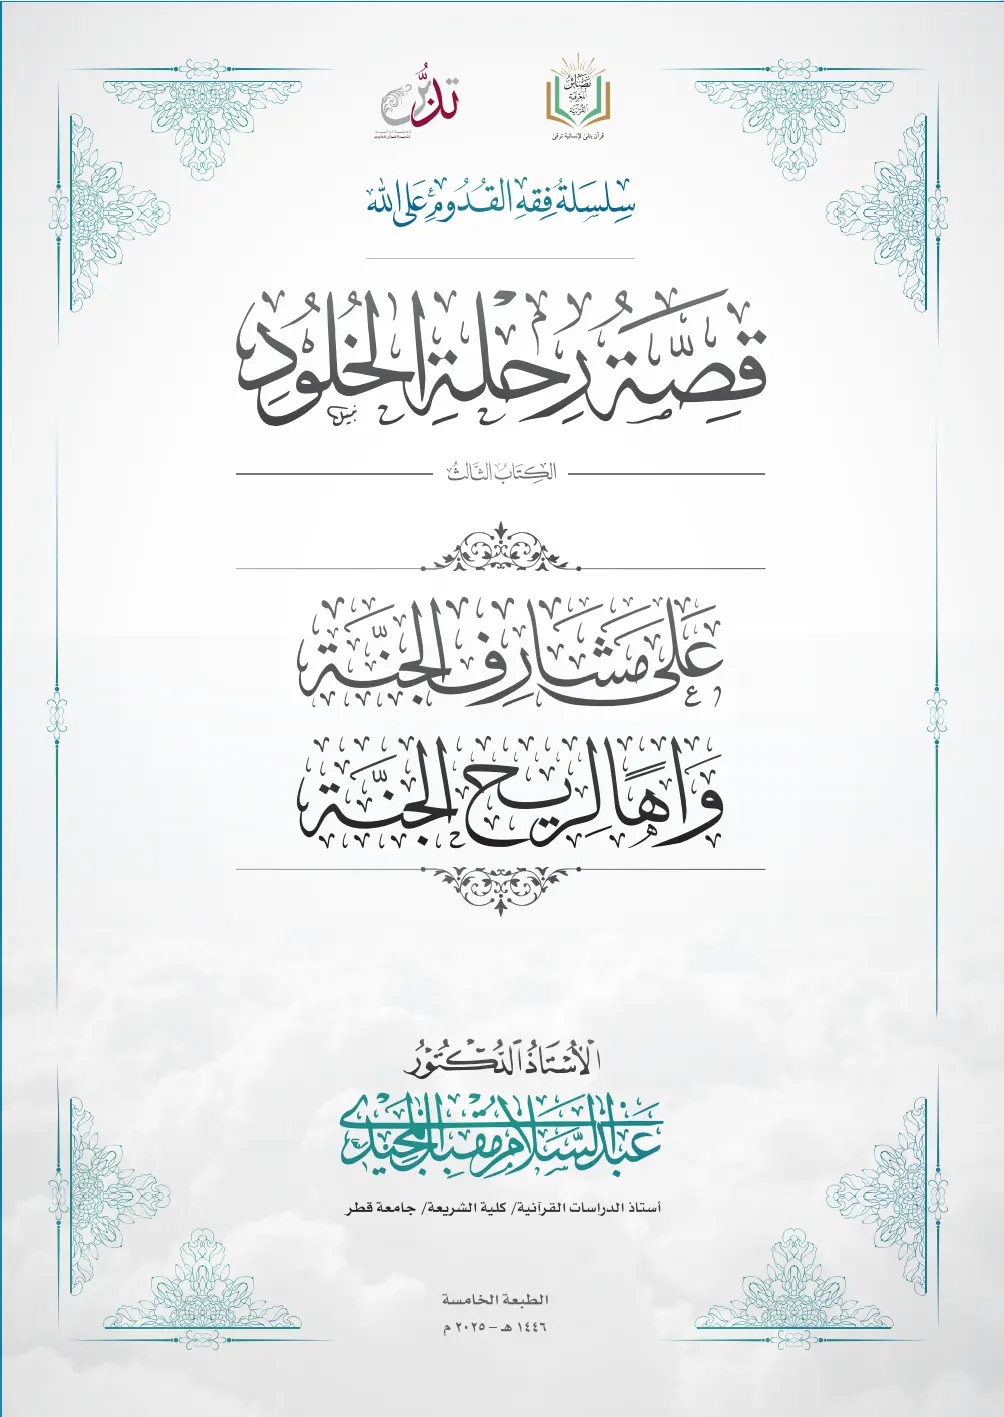 بصائر
المعرفة
القرآنية
قرآن يتلى لإنسانية ترقى
تدبر
سِلسَلَةُ فِقهِ القُدُومِ عَلى الله
قِصَّةُ رِحْلَةِ الخُلُودِ
الكِتَابُ الثَّالثُ
عَلَى مَشَارِفِ الجنَّة
وَاهًا لِرِيحِ الجنَّة
الأُسْتَاذُ الدُّكْتُورُ
عَبْدُ السَّلَامِ مُقْبِلِ المَجِيْدِي
أستاذ الدراسات القرآنية/ كلية الشريعة/ جامعة قطر
الطبعة الخامسة
١٤٤٦ هـ – ٢٠٢٥ م